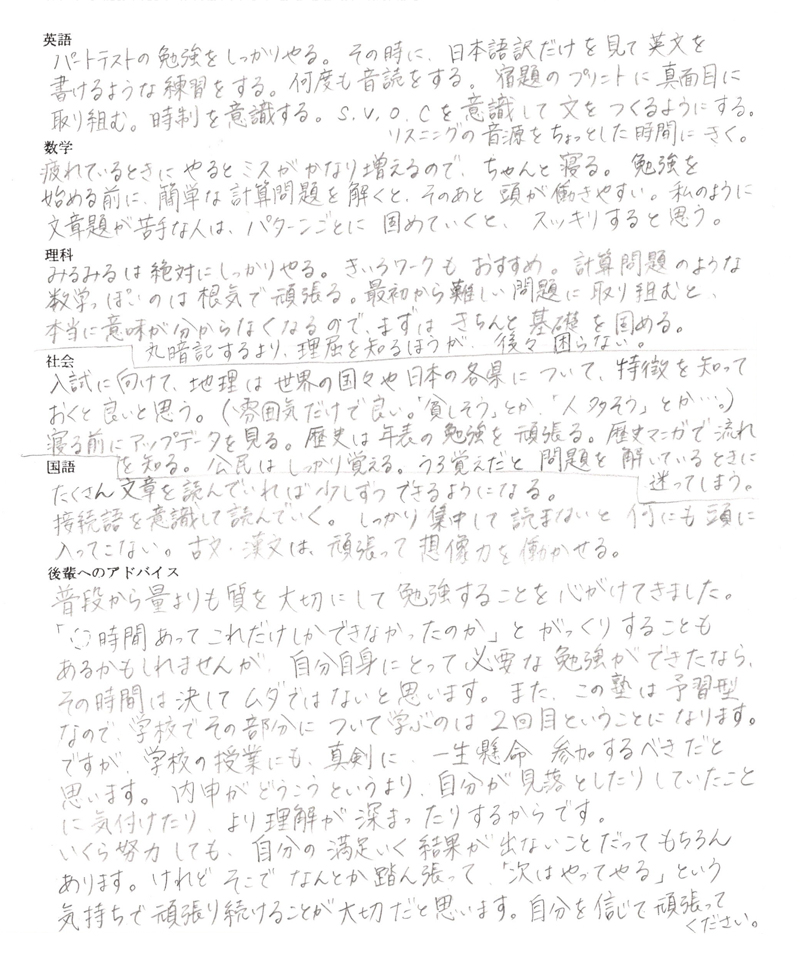 英語
パートテストの勉強をしっかりやる。その時に、日本語訳だけを見て英文を
書けるような練習をする。何度も音読をする。宿題のプリントに真面目に
取り組む。時制を意識する。S.V.O.Cを意識して文をつくるようにする。
リスニングの音源をちょっとした時間にきく。
数学
疲れているときにやるとミスがかなり増えるので、ちゃんと寝る。勉強を
始める前に、簡単な計算問題を解くと、そのあと頭が働きやすい。私のように
文章題が苦手な人は、パターンごとに固めていくと、スッキリすると思う。
理科
みるみるは絶対にしっかりやる。きいろワークもおすすめ。計算問題のような
数学っぽいのは根気で頑張る。最初から難しい問題に取り組むと、
本当に意味が分からなくなるので、まずはきちんと基礎を固める。
丸暗記するより、理屈を知るほうが、後々困らない。
社会
入試に向けて、地理は世界の国々や日本の各県について、特徴を知って
おくと良いと思う。(雰囲気だけで良い。「貧しそう」とか「人多そう」とか…。)
寝る前にアップデータを見る。歴史は年表の勉強を頑張る。歴史マンガで流れ
を知る。公民はしっかり覚える。うろ覚えだと問題を解いているときに
迷ってしまう。
国語
たくさん文章を読んでいれば少しずつできるようになる。
接続語を意識して読んでいく。しっかり集中して読まないと何にも頭に
入ってこない。古文・漢文は、頑張って想像力を働かせる。
後輩へのアドバイス
普段から量よりも質を大切にして勉強することを心がけてきました。
「◌時間あってこれだけしかできなかったのか」とがっくりすることも
あるかもしれませんが、自分自身にとって必要な勉強ができたなら、
その時間は決してムダではないと思います。また、この塾は予習型
なので、学校でその部分について学ぶのは2回目ということになります。
ですが、学校の授業にも、真剣に、一生懸命参加するべきだと
思います。内申がどうこうというより、自分が見落としたりしていたこと
に気付けたり、より理解が深まったりするからです。
いくら努力しても、自分の満足いく結果が出ないことだってもちろん
あります。けれどそこでなんとか踏ん張って、「次はやってやる」という
気持ちで頑張り続けることが大切だと思います。自分を信じて頑張って
ください。